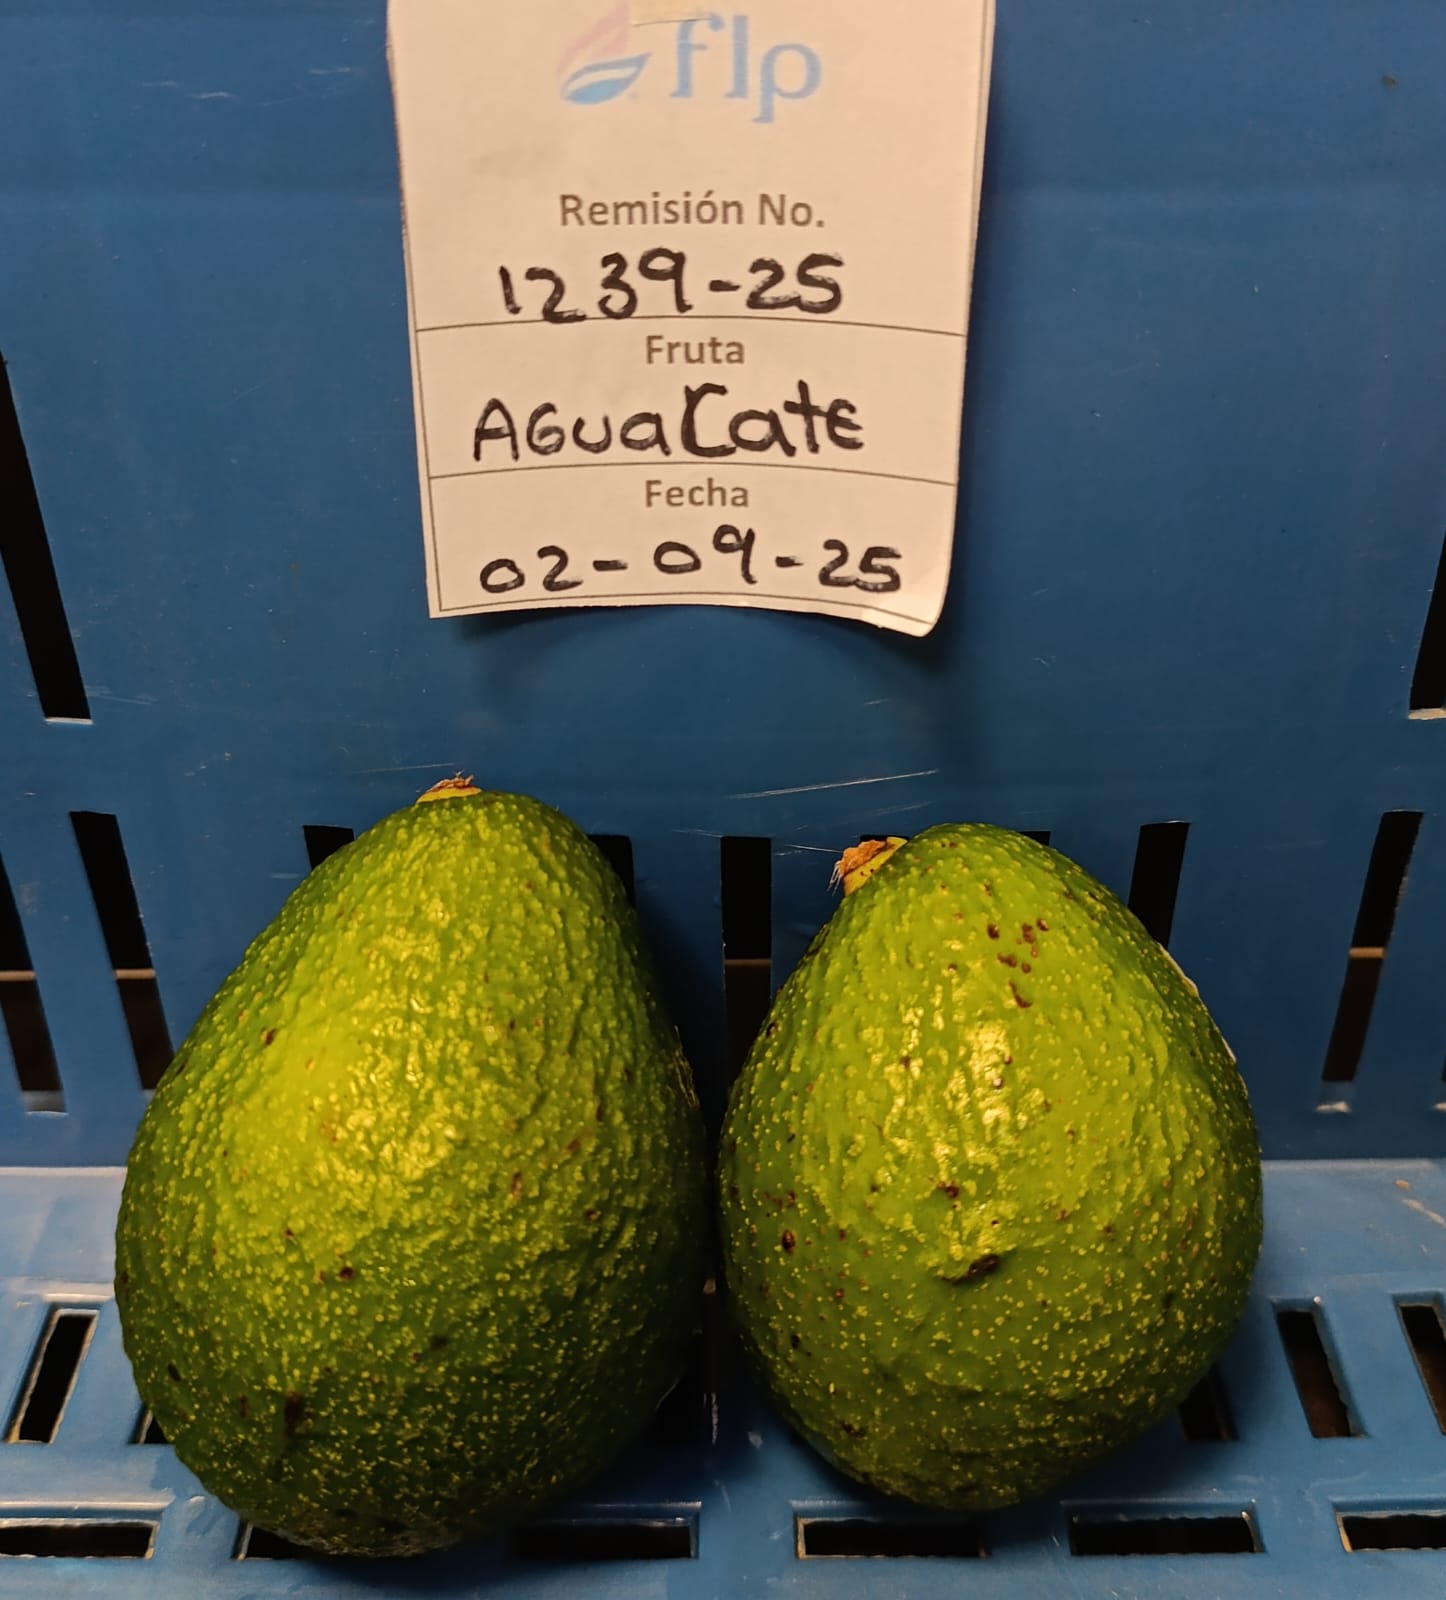 flp
Remisión No.
1239-25
Fruta
AGuaCatE
Fecha
02-09-25